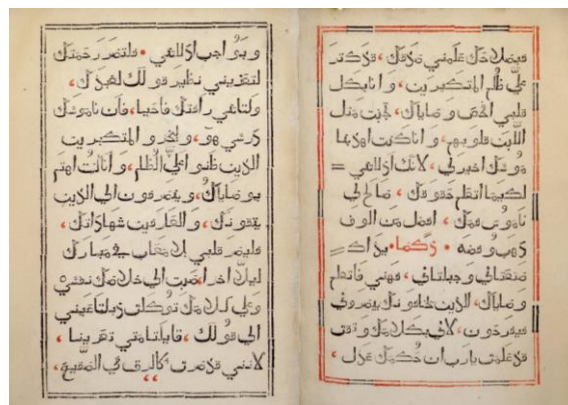 فبصلاحك علمني صدقك، قد كثر
علي ظلم المتكبرين، وانا بكل
قلبي افحص وصاياك، تجبن مثل
اللبن قلوبهم، وانا
اخير لي، لانك اذللتني =
لكيما اتعلم حقوقك، صالح لي
ناموس فمك، افضل من الوف
ذهب وفضه • زكما • يداك =
صنعتاني وجبلتاني، فهمني فاتعلم
وصاياك، الذين يخافونك يبصروني
فيفرحون، لاني بكلامك وثقت
قد علمت يارب ان حكمك عدل،
وبواجب اذللتني • فلتصر رحمتك
لتعزيني نظير قولك لعبدك،
ولتاتني رافتك فاحيا، فان ناموسك
درسي هو، المتكبرين
الذين علي الظلم، وانا اهتم
بوصاياك، الي الذين
يتقونك، والعارفين شهاداتك،
فليصر قلبي بلا معاب في
ليلا اخزا، صبت الي خلاصك نفسي
وعلي كلامك توكلت ذبلت عيني
الي قولك، متي تعزينا،
لانني قد صرت كالزق في الصقيع،